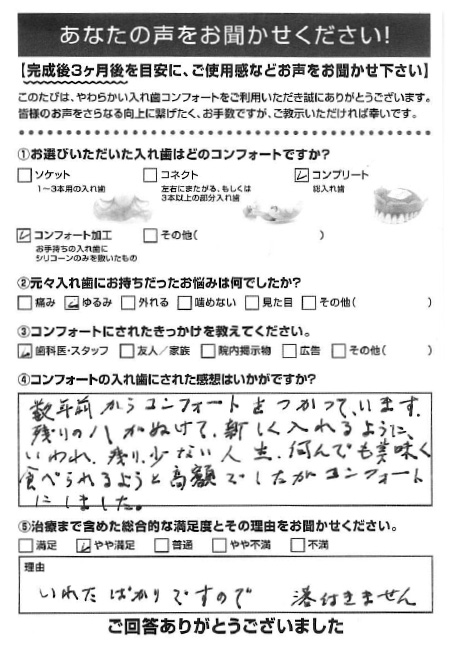 あなたの声をお聞かせください!
【完成後3ヶ月後を目安に、ご使用感などお声をお聞かせ下さい】
このたびは、やわらかい入れ歯コンフォートをご利用いただき誠にありがとうございます。
皆様のお声をさらなる向上に繋げたく、お手数ですが、ご教示いただければ幸いです。
①お選びいただいた入れ歯はどのコンフォートですか?
□ソケット
1〜3本用の入れ歯
□コネクト
左右にまたがる、もしくは
3本以上の部分入れ歯
☑コンプリート
総入れ歯
☑コンフォート加工
お手持ちの入れ歯に
シリコーンのみを敷いたもの
□その他( )
②元々入れ歯にお持ちだったお悩みは何でしたか?
□痛み ☑ゆるみ □外れる □噛めない □見た目 □その他( )
③コンフォートにされたきっかけを教えてください。
☑歯科医・スタッフ □友人/家族 □院内掲示物 □広告 □その他( )
④コンフォートの入れ歯にされた感想はいかがですか?
数年前からコンフォートをつかっています.
残りのハがぬけて、新しく入れるように、
いわれ、残り少ない人生、何んでも美味く
食べられるようと高額でしたがコンフォート
にしました。
⑤治療まで含めた総合的な満足度とその理由をお聞かせください。
□満足 ☑やや満足 □普通 □やや不満 □不満
理由
いれたばかりですので 付きません
ご回答ありがとうございました